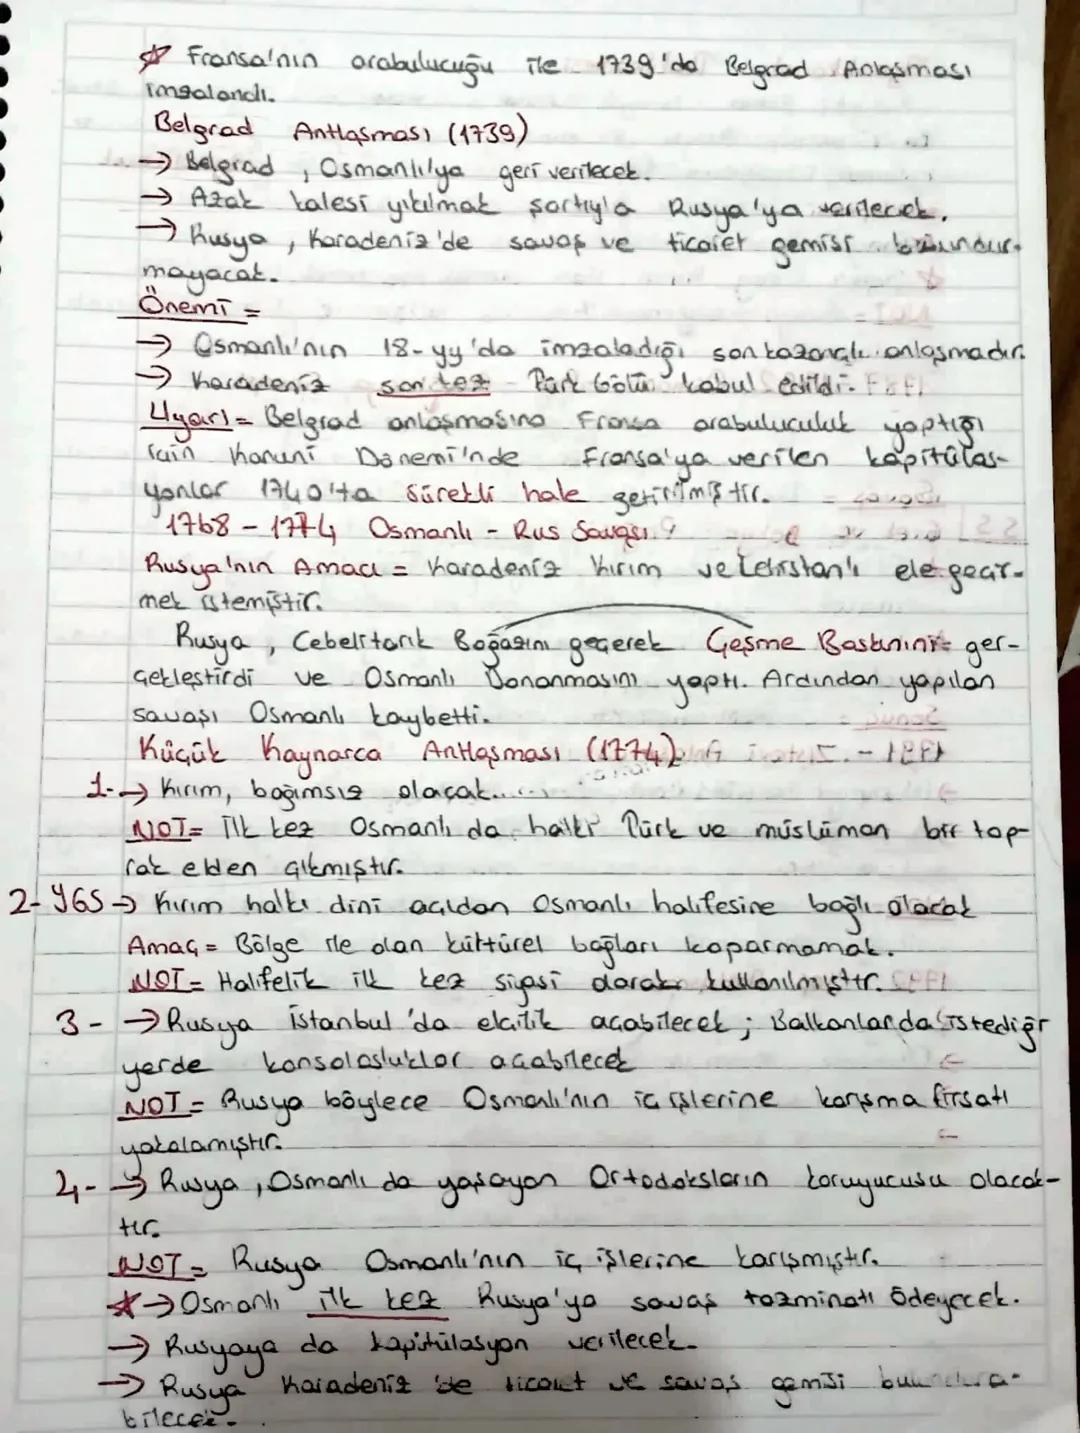 ☆ Fransa'nın arabulucuğu ile 1739'da Belgrad Anlaşması
imzalandı.
Belgrad Antlaşması (1739)
→ Belgrad, Osmanlı'ya geri verilecek.
→ Azak kalesi yıkılmak şartıyla Rusya'ya verilecek.
→ Rusya, Karadeniz'de savaş ve ticaret gemisi bulundur-
mayacak.
Önemi =
→ Osmanlı'nın 18-yy'da imzaladığı son kazançlı anlaşmadır.
→ Karadeniz son kez Türk Gölü kabul edildi.
Uyarı = Belgrad anlaşmasına Fransa arabuluculuk yaptığı
için Kanuni Dönemi'nde Fransa'ya verilen kapitülas-
yonlar 1740'ta sürekli hale getirilmiştir.
1768 - 1774 Osmanlı - Rus Savaşı
Rusya'nın Amacı = Karadeniz Kırım ve Lehistan'ı ele geçir-
mek istemiştir.
Rusya, Cebelitarık Boğazını geçerek Çeşme Baskınını ger-
çekleştirdi ve Osmanlı Donanmasını yaptı. Ardından yapılan
savaşı Osmanlı kaybetti.
Küçük Kaynarca Antlaşması (1774)
1- → Kırım, bağımsız olacak.
NOT = İlk kez Osmanlı da halkı Türk ve müslüman bir top-
rak elden çıkmıştır.
2- YGS → Kırım halkı dini açıdan Osmanlı halifesine bağlı olacak
Amaç = Bölge ile olan kültürel bağları koparmamak.
NOT = Halifelik ilk kez siyasi olarak kullanılmıştır.
3- → Rusya İstanbul'da elçilik açabilecek; Balkanlarda istediği
yerde konsolosluklar açabilecek
NOT = Rusya böylece Osmanlı'nın iç işlerine karışma fırsatı
yakalamıştır.
4- → Rusya, Osmanlı da yaşayan Ortodoksların koruyucusu olacak-
tır.
NOT = Rusya Osmanlı'nın iç işlerine karışmıştır.
☆ → Osmanlı ilk kez Rusya'ya savaş tazminatı ödeyecek.
→ Rusyaya da kapitülasyon verilecek.
→ Rusya Karadeniz'de ticaret ve savaş gemisi bulundura-
bilecek.